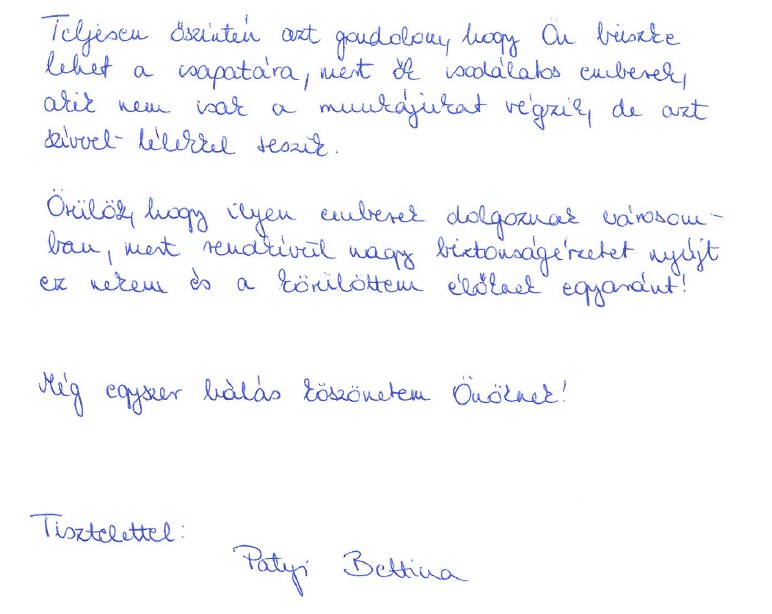 Teljesen őszintén azt gondolom, hogy Ön büszke
lehet a csapatára, mert ők csodálatos emberek,
akik nem csak a munkájukat végzik, de azt
szívvel-lélekkel teszik.
Örülök, hogy ilyen emberek dolgoznak városom-
ban, mert rendkívül nagy biztonságérzetet nyújt
ez nekem és a körülöttem élőknek egyaránt!
Még egyszer hálás köszönetem Önöknek!
Tisztelettel:
Patyi Bettina